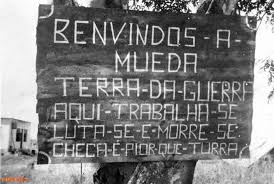 BENVINDOS-A-
MUEDA
TERRA-DA-GUERRA
AQUI-TRABALHA-SE
LUTA-SE-E-MORRE-SE
CHECA-É-PIOR-QUE-TURRA